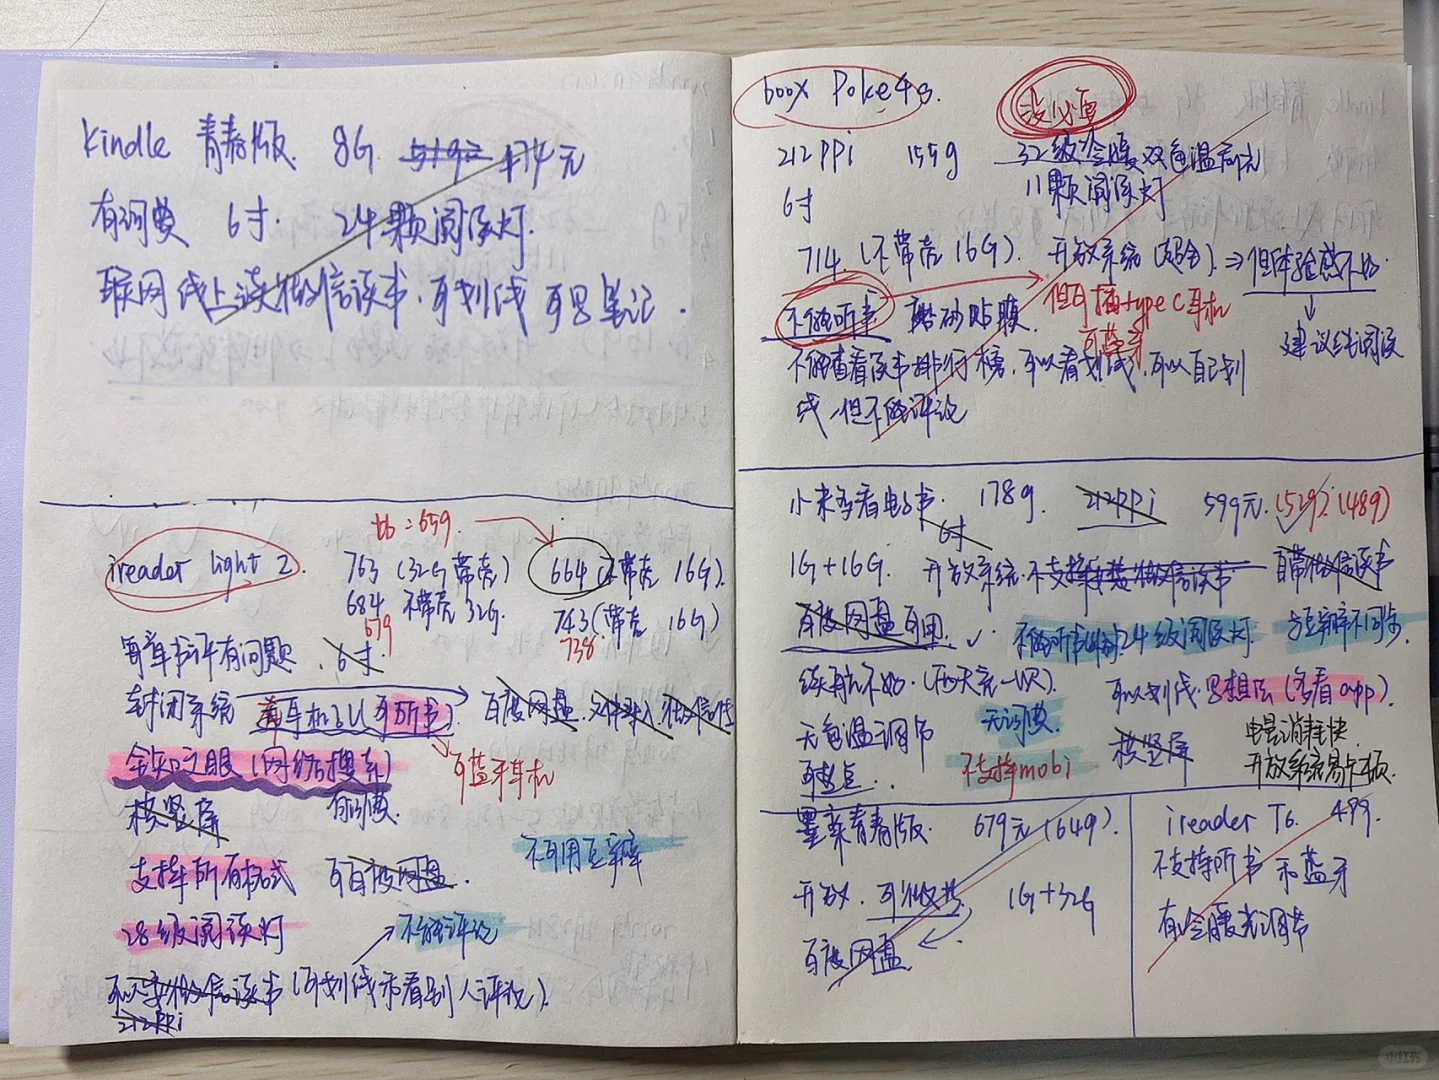 Kindle 青春版. 8G. 519元 474元
有词典 6寸. 24颗阅读灯.
联网线上读微信读书. 可划线 可写笔记.
tb:659.
ireader light 2. 763 (32G 带壳) 664 (不带壳 16G).
684 不带壳 32G. 743 (带壳 16G)
679 738
每章书评有问题. 6寸
封闭系统 蓝牙耳机可以可听书. 百度网盘. 文件传入. 微信传
全知之眼(网络搜索) 可蓝牙耳机
横竖屏 有词典.
不可用豆瓣
支持所有格式 可百度网盘.
28级阅读灯 不能评论
可以下载微信读书(可划线不看别人评论).
212PPi
boox Poke4s. 没必要
212PPi 155g 32级冷暖双色温前光
6寸 11颗阅读灯
714. (不带壳 16G). 开放系统 (超会). ⇒ 但体验感不好.
不能听书 磨砂贴膜. 但可插type C耳机 建议纯阅读
可蓝牙
不能查看读书排行榜, 可以看划线, 可以自己划
线, 但不能评论
小米多看电子书. 178g. 212PPi 599元. (529) (489)
6寸
1G+16G. 开放系统. 不支持安装微信读书 自带微信读书
百度网盘可用. ✓ 不能听书 24级阅读灯 与豆瓣不同步.
续航不好. (两天充一次). 可以划线. 写想法(多看app).
无色温调节 无词典 横竖屏 电量消耗快.
可熄点. 不支持mobi 开放系统易卡顿.
墨案青春版. 679元 (649).
开放. 可微信 1G+32G
百度网盘
ireader T6. 499.
不支持听书 和蓝牙
有冷暖光调节
小红书